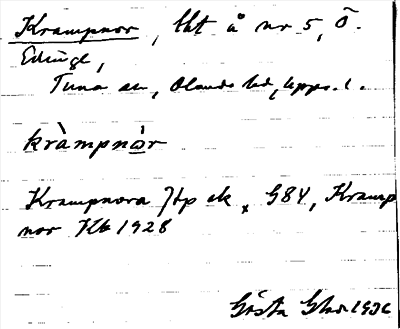 Krampnor, lht å nr 5, Ö.
Edinge,
Tuna sn, Olands hd, Upps. l.
kràmpnàr
Krampnora Jtp ek x G84, Kramp
nor Kb 1928
Gösta 1936